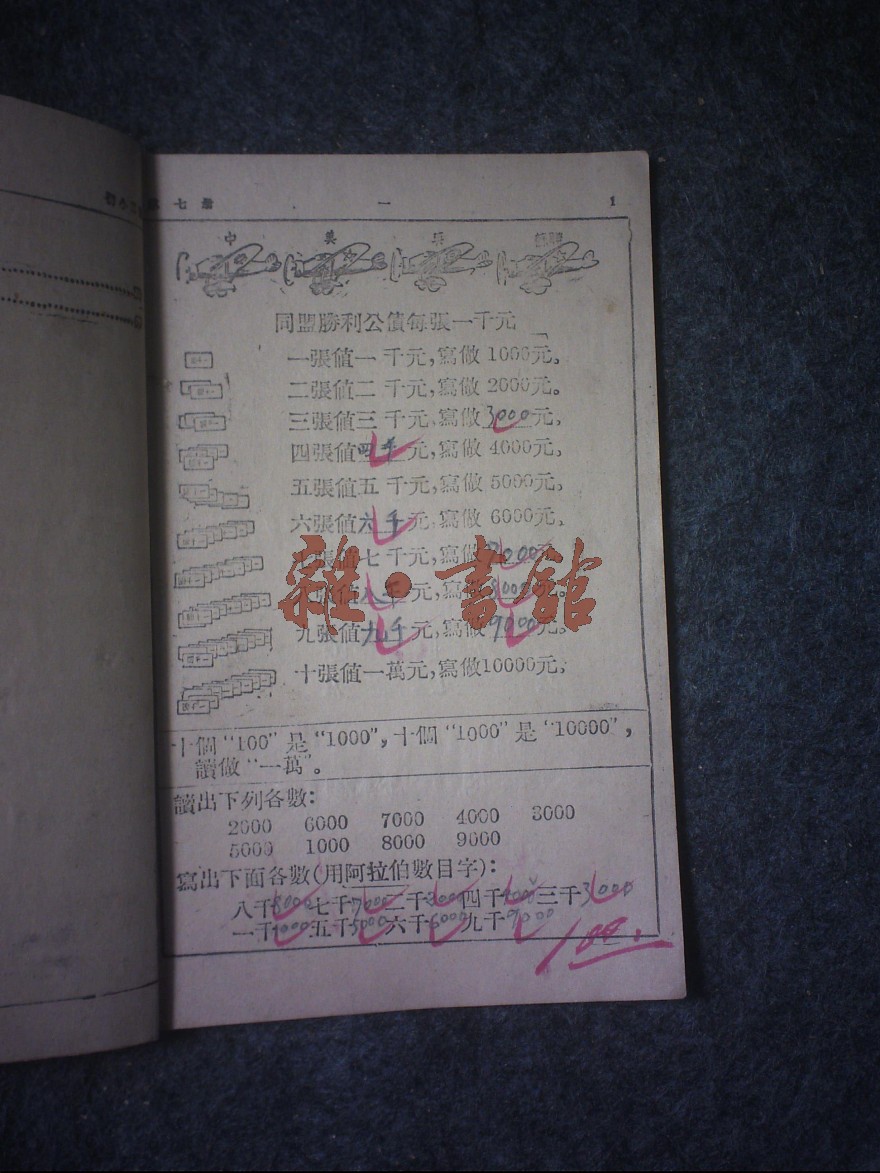 七 一 1
中 美 英 蘇聯
同盟勝利公債每張一千元
一張值一千元,寫做1000元。
二張值二千元,寫做2000元。
三張值三千元,寫做3000元。
四張值四千元,寫做4000元。
五張值五千元,寫做5000元。
六張值六千元,寫做6000元。
七張值七千元,寫做7000元
八張值八千元,寫做8000元。
九張值九千元,寫做9000元。
十張值一萬元,寫做10000元。
雜·書館
十個“100”是“1000”,十個“1000”是“10000”,
讀做“一萬”。
讀出下列各數:
2000 6000 7000 4000 3000
5000 1000 8000 9000
寫出下面各數(用阿拉伯數目字):
八千8000七千7000二千2000四千4000三千3000
一千1000五千5000六千6000九千9000
100.